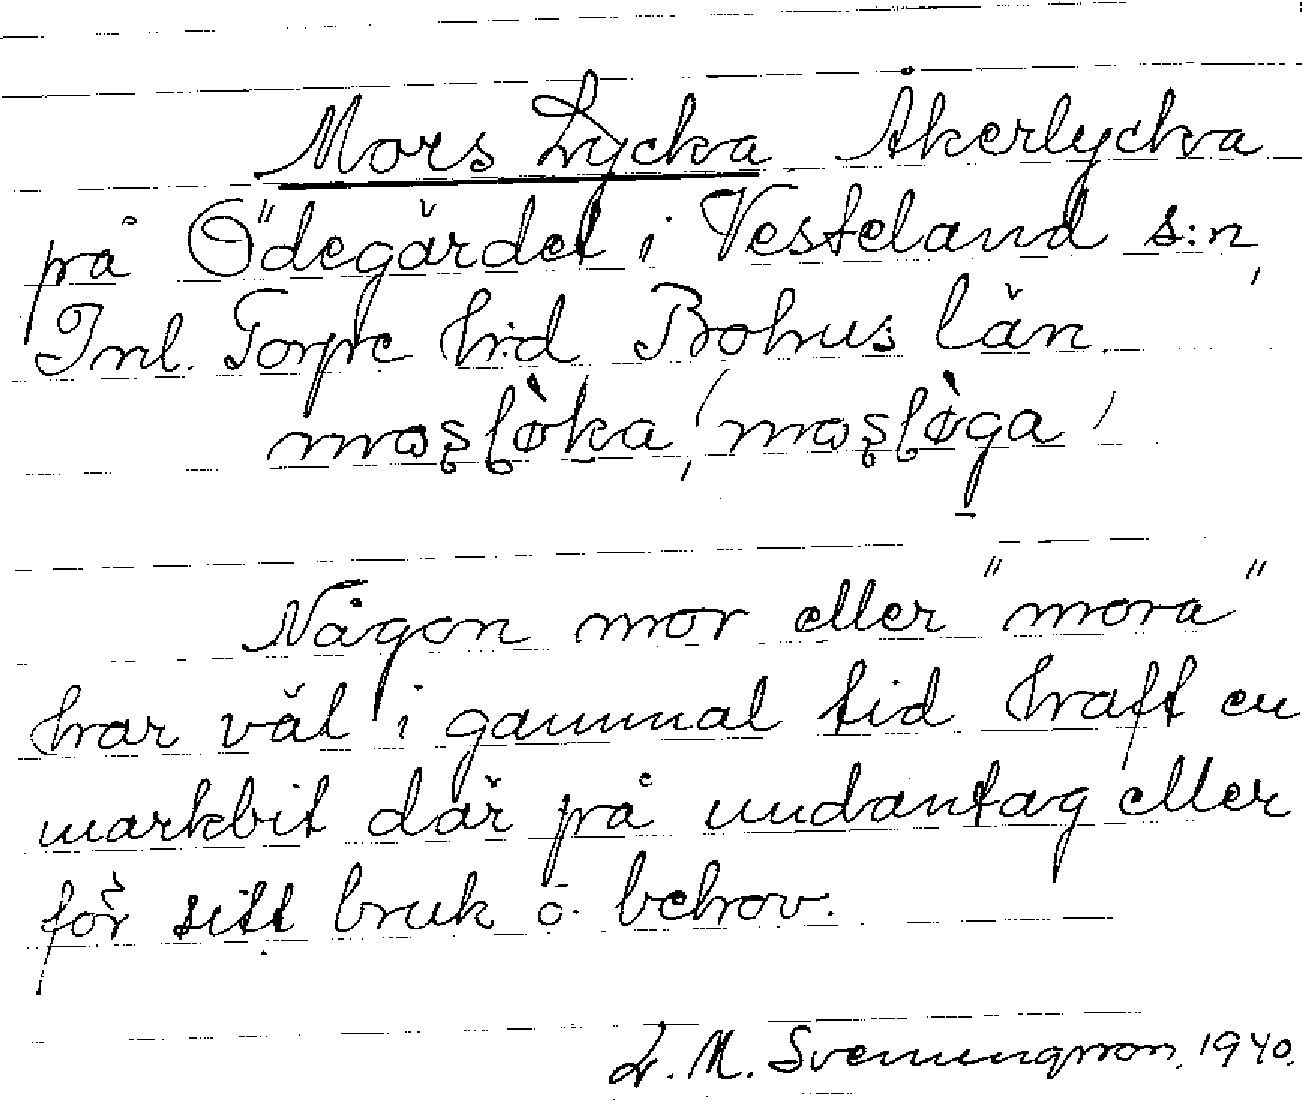 Mors Lycka Åkerlycka
på Ödegärdet i Vesteland s:n,
Inl. Torpe hd Bohus län.
Någon mor eller "mora"
har väl i gammal tid haft en
markbit där på undantag eller
för sitt bruk o. behov.
L. M. Svenungsson. 1940.